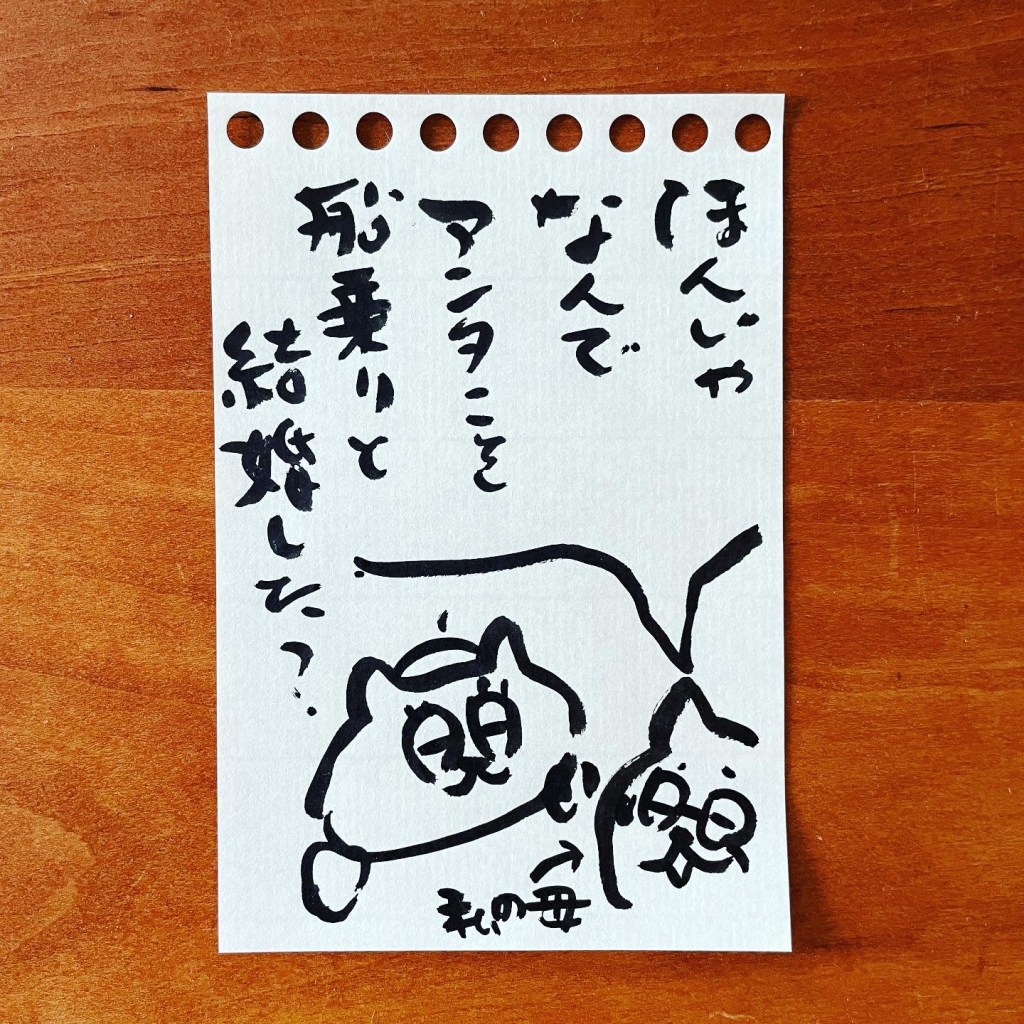 ほんじゃ
なんで
アンタこそ
船乗りと
結婚した?
私の母